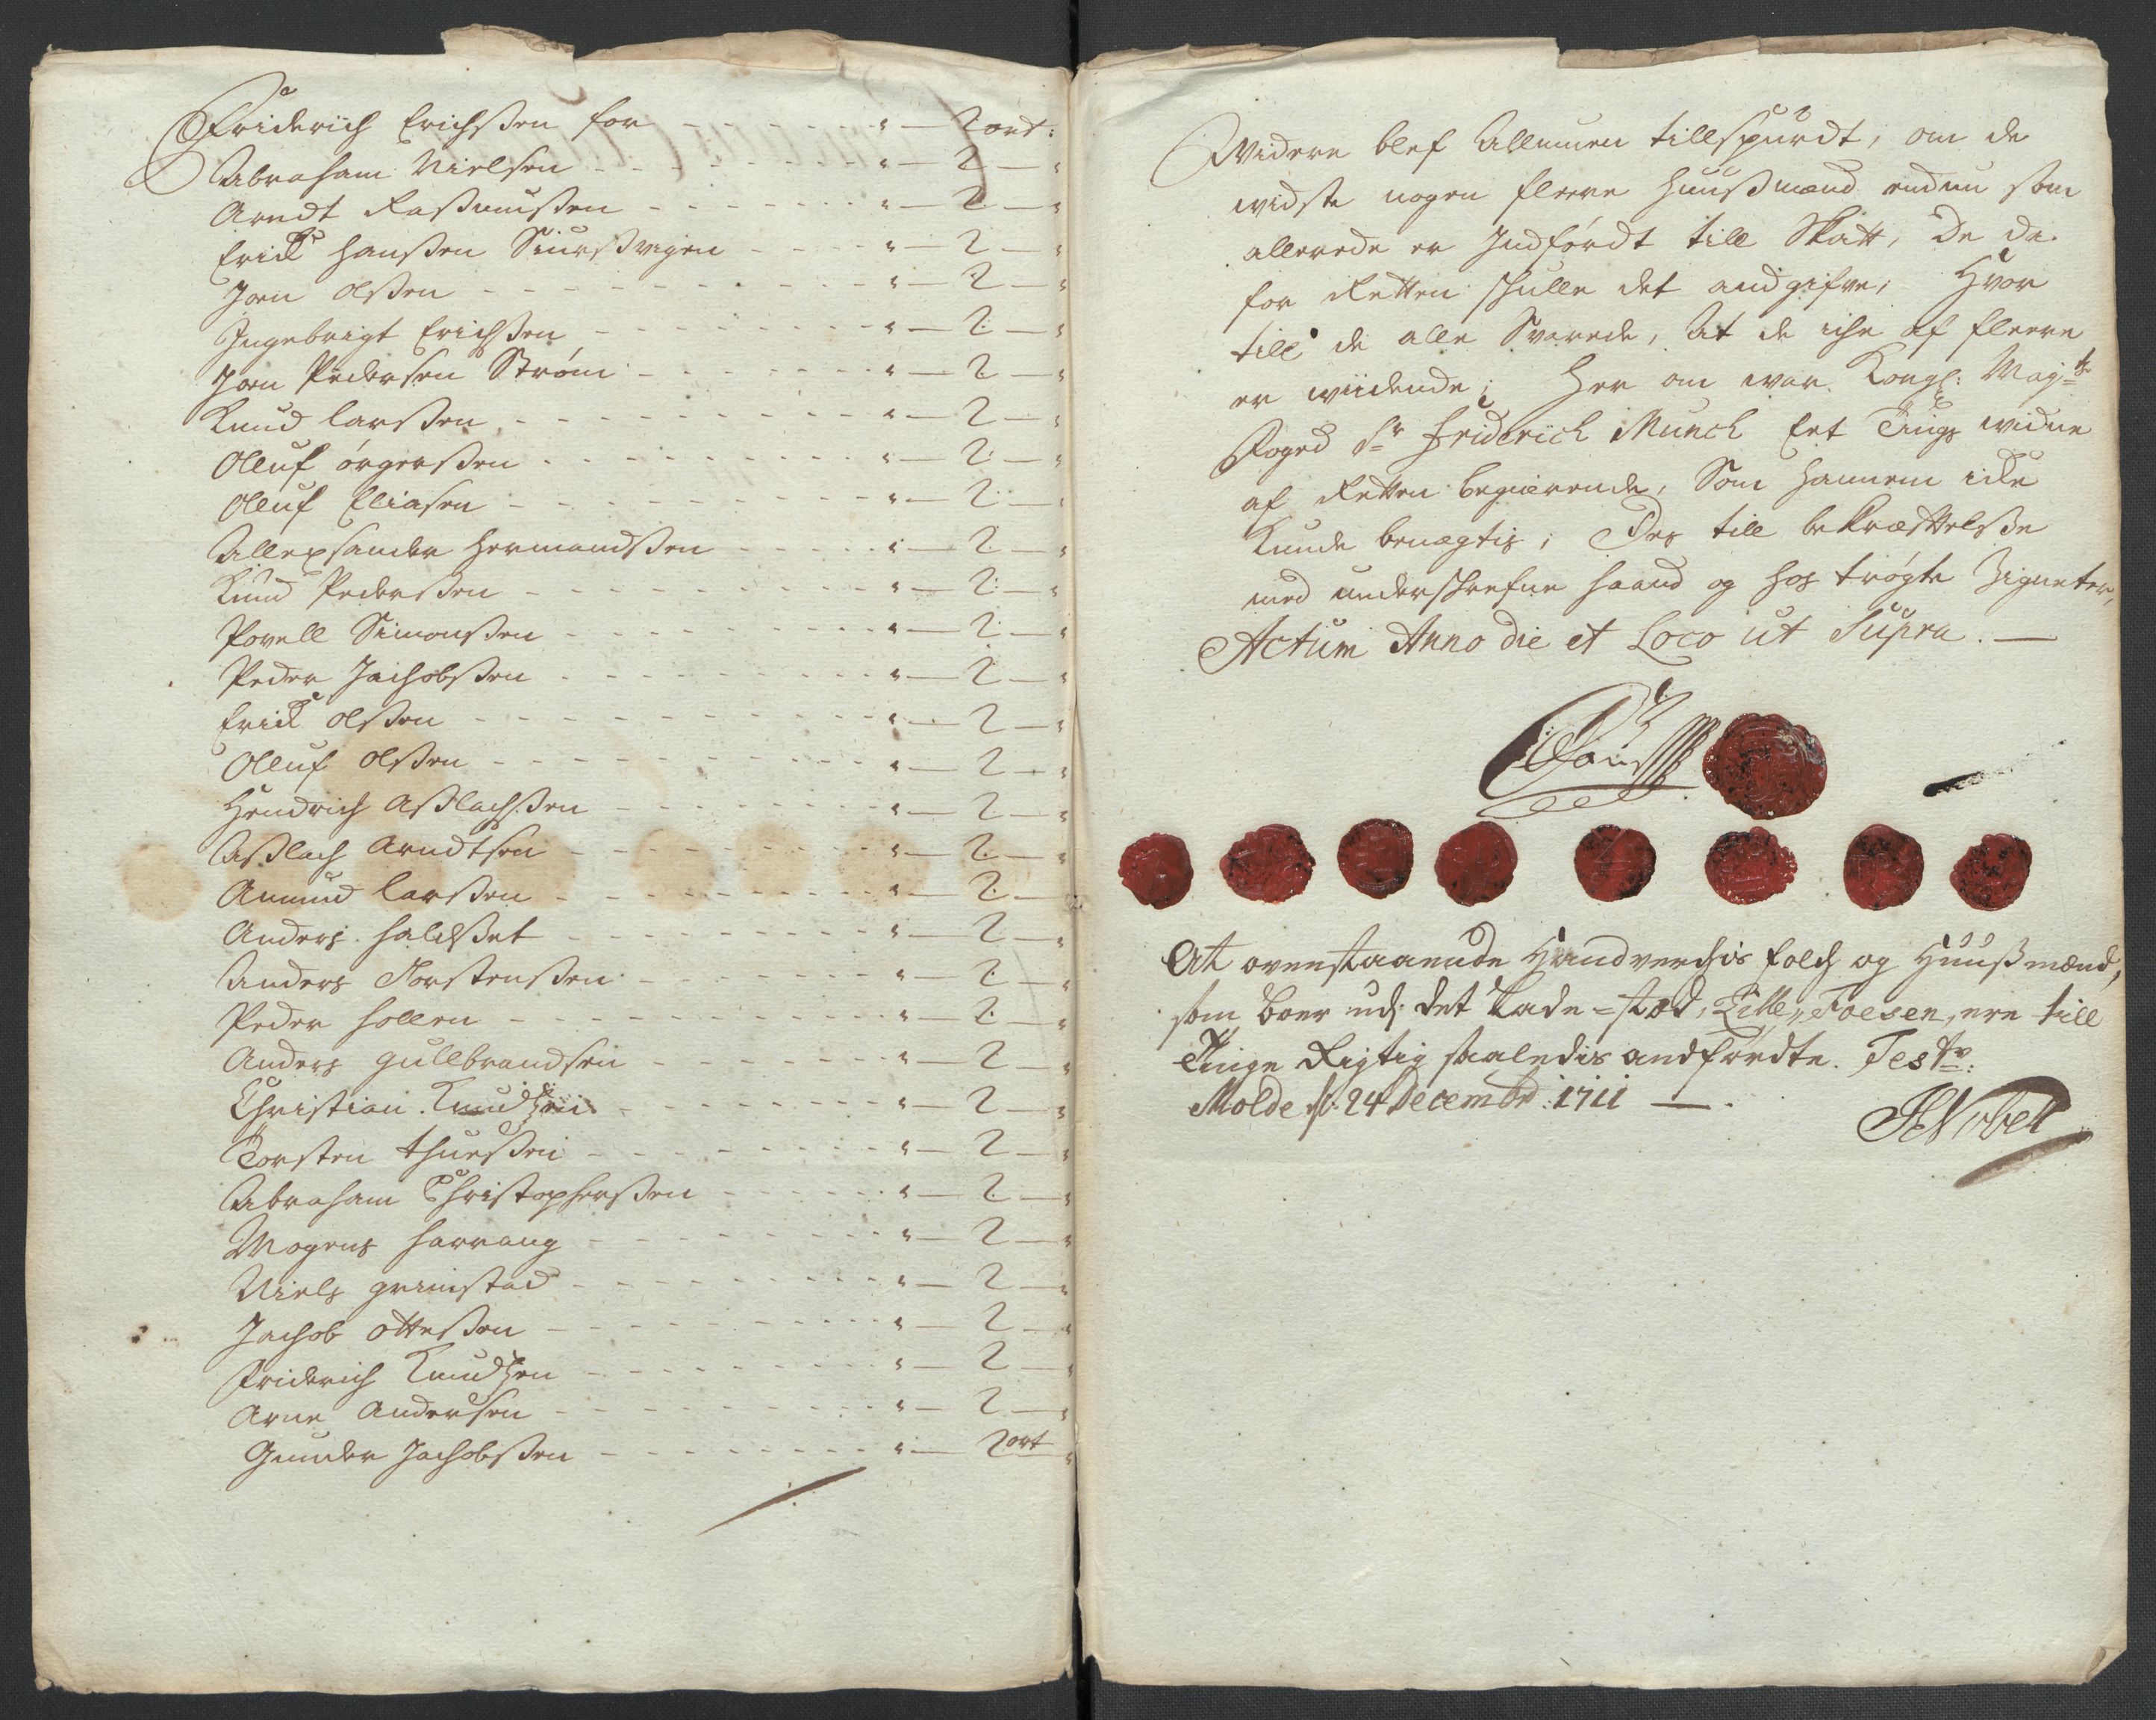 Friderich Erichssen for - - - - " — 2 ort:
Abraham Nielsen - - - - " — 2 — "
Arndt Rasmussen - - - - " — 2 — "
Erick Hanssen Siursvigen - - - " — 2 — "
Joen Olssen - - - - " — 2 — "
Ingebrigt Erichssen - - - - " — 2 — "
Joen Pedersen Strøm - - - - " — 2 — "
Knud Larssen - - - - " — 2 — "
Olluf Ørgerssen - - - - " — 2 — "
Olluf Eliasen - - - - " — 2 — "
Allexsander Hermandssen - - - - " — 2 — "
Knud Pederssen - - - - " — 2 — "
Povell Simonssen - - - - " — 2 — "
Peder Jachobssen - - - - " — 2 — "
Erick Olssen - - - - " — 2 — "
Olluf Olssen - - - - " — 2 — "
Hendrich Asslachssen - - - - " — 2 — "
Asslach Arndtsen - - - - " — 2 — "
Amund Larssen - - - - " — 2 — "
Anders Haldsset - - - - " — 2 — "
Anders Torstenssen - - - - " — 2 — "
Peder Hollen - - - - " — 2 — "
Anders Gullbrandsen - - - - " — 2 — "
Christian Knudtzen - - - - " — 2 — "
Torsten Thuessen - - - - " — 2 — "
Abraham Christopherssen - - - - " — 2 — "
Mogens Harrang - - - - " — 2 — "
Niels Grimstad - - - - " — 2 — "
Jachob Ottessen - - - - " — 2 — "
Friderich Knudtzen - - - - " — 2 — "
Arne Andersen - - - - " — 2 — "
Gunder Jachobssen - - - - " — 2 ort "
Widere blef Allmuen tillspurdt, om de
widste nogen fleere Huussmænd endnu som
allerede er Jndførdt till Skatt, De da
for Retten skulle det andgifve; Hvor
till de alle Svarede, At de iche af fleere
er wiidende; Her om war Kongl: Mayts
Foged Sr Friderich Munch Eet Tings widne
af Retten begierende, Som hannem icke
Kunde benægtis; Des till bekræfftelsse
med underskrefne haand og hos trøgte Zigneter,
Actum Anno die et Loco ut Supra. —
At ovenstaaende Handverchs folch og Huussmænd,
som boer udj det Lade-stæd, Lille, Foesen, ere till
Tinge Rigtig saaledis andførdte. Test:
Molde d: 24 Decembr: 1711 —